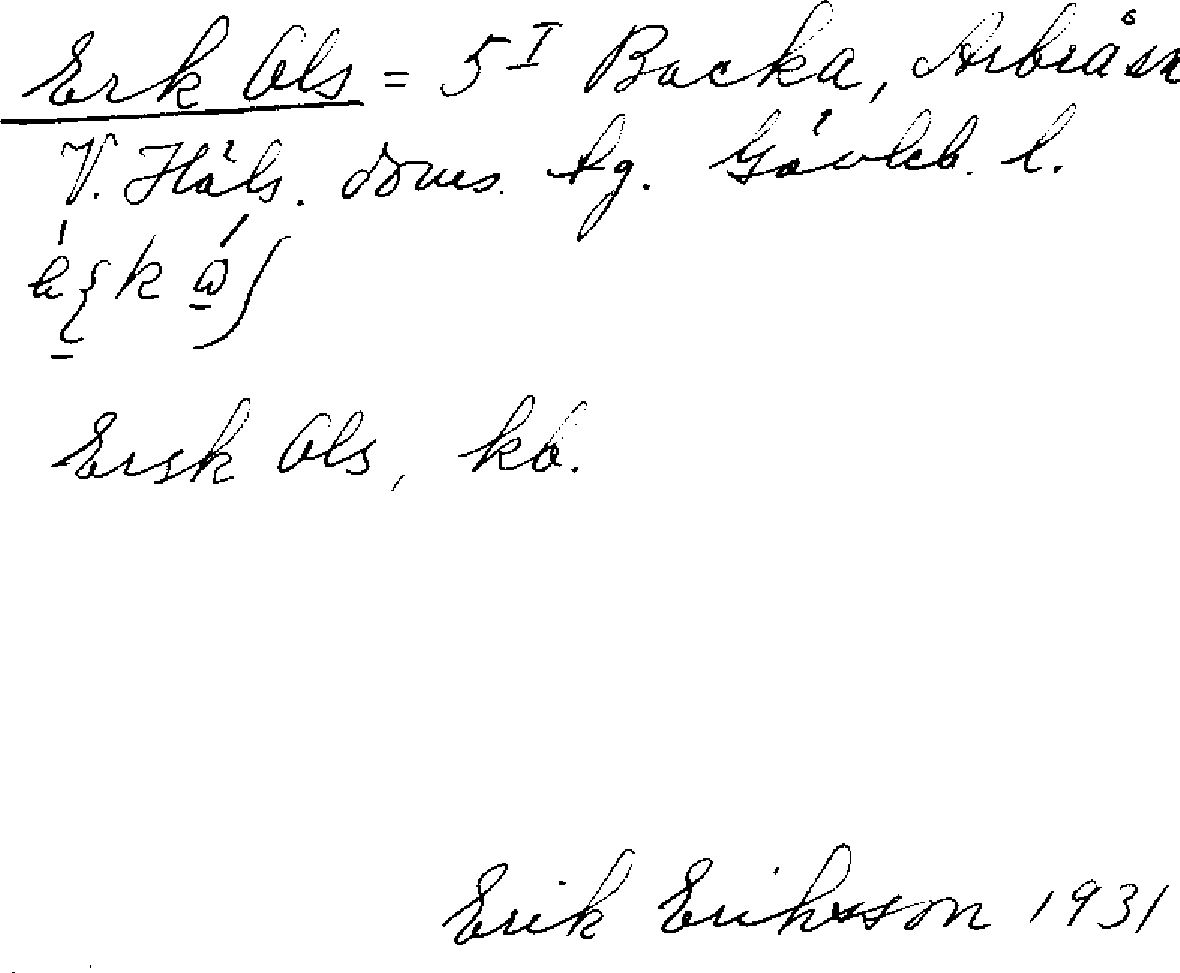 Erk Ols = 5 I Backa, Arbrå sn
V. Häls. doms. tg. Gävleb. l.
Ersk Ols, kb.
Erik Eriksson 1931